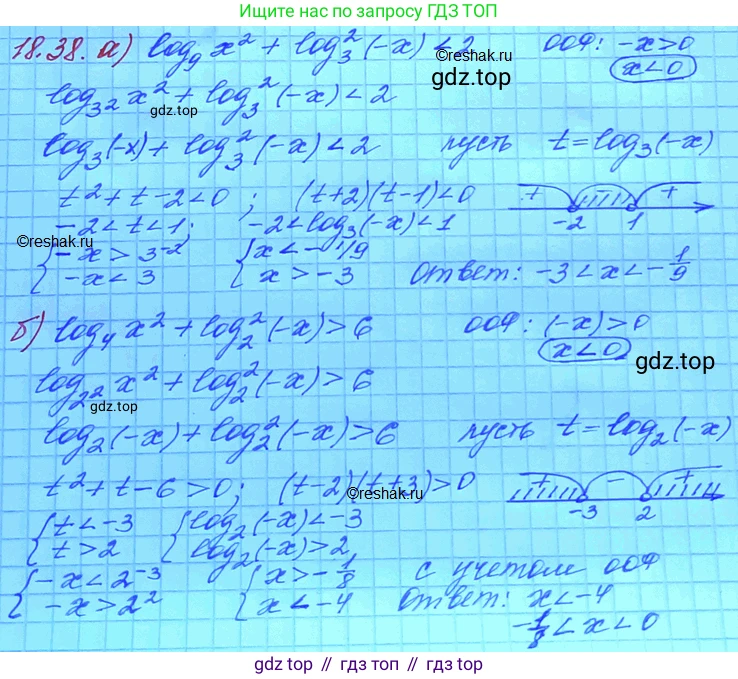 Ищите нас по запросу ГДЗ ТОП
18.38. а) log₉ x² + log₃² (-x) < 2 ООФ: -x>0
gdz.top x<0
©reshak.ru
log₃₂ x² + log₃² (-x) < 2
gdz.top
log₃(-x) + log₃² (-x) < 2 пусть t = log₃(-x)
t² + t - 2 < 0 ; (t+2)(t-1) < 0 + - +
-2 < t < 1; -2 < log₃(-x) < 1 -2 1
©reshak.ru
{ -x > 3⁻² { x < -1/9
-x < 3 x > -3 Ответ: -3 < x < -1/9
б) log₄ x² + log₂² (-x) > 6 ООФ: (-x) > 0
x < 0
gdz.top
log₂₂ x² + log₂² (-x) > 6
gdz.top
log₂(-x) + log₂² (-x) > 6 пусть t = log₂(-x)
t² + t - 6 > 0; (t-2)(t+3) > 0 + - +
©reshak.ru
-3 2
{ t < -3 { log₂(-x) < -3
t > 2 log₂(-x) > 2
{ -x < 2⁻³ { x > -1/8 с учетом ООФ
-x > 2² x < -4 Ответ: x < -4
-1/8 < x < 0
gdz.top // гдз топ // gdz.top